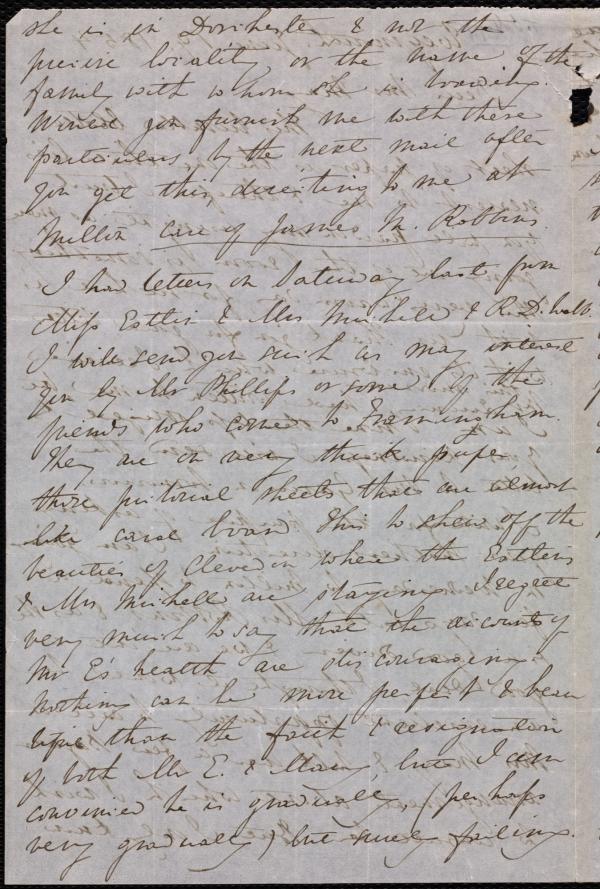 she is in Dorchester & not the
precise locality or the name of the
family with whom she is boarding.
Would you furnish me with these
particulars by the next mail after
you get this directing to me at
Milton care of James M. Robbins.
I had letters on Saturday last from
Miss Estlin & Mrs Michell & R. D. Webb.
I will send you such as may interest
you by Mr Phillips or some of the
friends who come to Framingham.
They are on very thick paper
those pictorial sheets that are almost
like card board this to shew off the
beauties of Clevedon where the Estlins
& Mrs Michell are staying. I regret
very much to say that the accounts of
Mr E's health are discouraging.
Nothing can be more perfect & beau
tiful than the faith & resignation
of both Mr E. & Mary but I am
convinced he is gradually, (perhaps
very gradually) but surely failing.